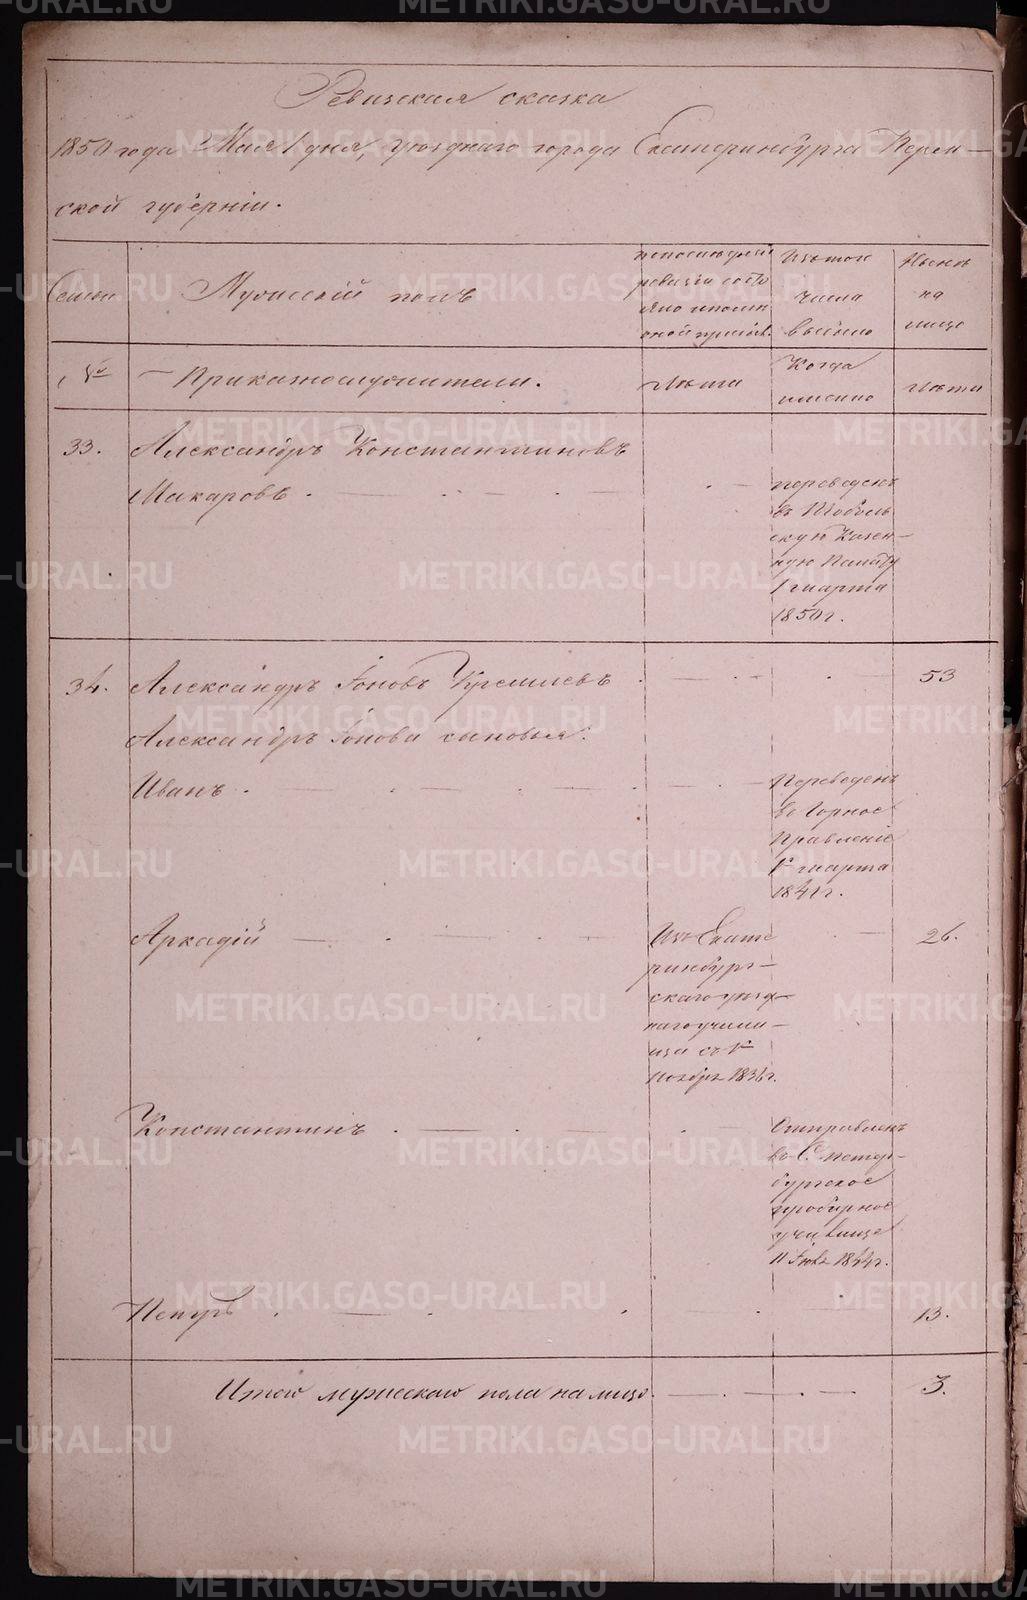 Ревизская сказка
1850 года Мая 1 дня, Уезднаго города Екатеринбурга Перм-
ской губерніи.
Семьи
Мужескій полъ
по последней
ревизіи состо
Изъ того
числа
выбыло
Ныне
на
лицо
№
Приказнослужители.
Лѣта
Когда
именно
Лѣта
33.
Александръ Константиновъ
Макаровъ.
переведенъ
въ Тоболь
скую Казен-
ную Палату
1 марта
1850 г.
34.
Александръ Іоновъ
53
Александръ Іонова сыновья:
Иванъ.
Переведенъ
въ Горное
Правленіе
марта
Аркадій
Изъ Екате
ринбург-
скаго уезд-
наго учили-
ща съ
Ноября
26.
Константинъ.
Отправленъ
въ С. Петер-
бургское
пробирное
училище
11 1844 г.
Петръ
13.
Итого мужескаго пола на лицо.
3.
METRIKI.GASO-URAL.RU